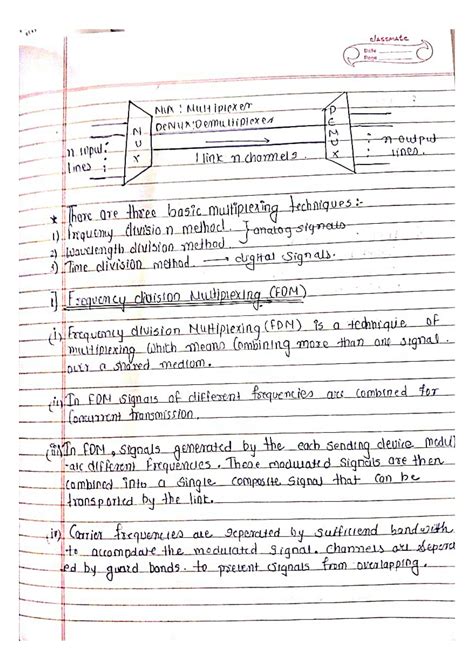 classmate
Date
Page
MUX : Multiplexer
DEMUX : Demultiplexer
MUX
DEMUX
n input
lines
1 link n channels.
n output
lines.
* There are three basic multiplexing techniques:-
1) frequency division method. } analog signals
2) wavelength division method
3) Time division method. → digital signals.
1] Frequency division Multiplexing (FDM)
(i) Frequency division Multiplexing (FDM) is a technique of
multiplexing which means combining more than one signal
over a shared medium.
(ii) In FDM signals of different frequencies are combined for
concurrent transmission.
(iii) In FDM, signals generated by the each sending device modul-
ate different frequencies. These modulated signals are then
combined into a single composite signal that can be
transported by the link.
(iv) Carrier frequencies are seperated by sufficiend bandwidth
to accomodate the modulated signal. channels are seperat
ed by guard bands. to prevent signals from overlapping.